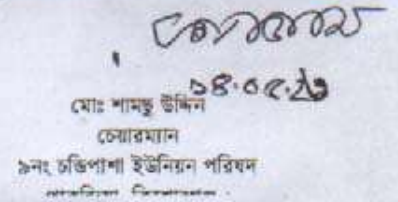 ১৪.০৫.২৩
মোঃ শামছু উদ্দিন
চেয়ারম্যান
৯নং চন্ডিপাশা ইউনিয়ন পরিষদ